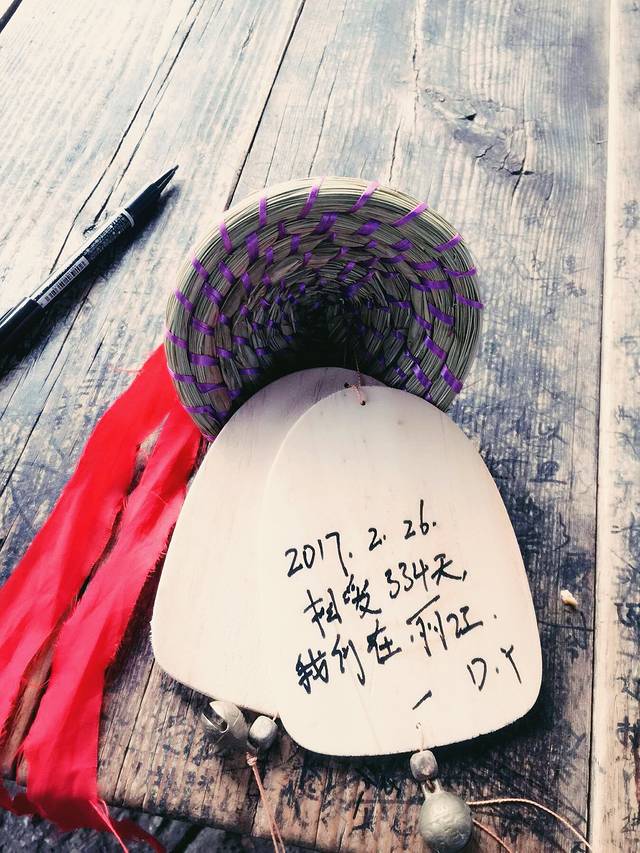 2017. 2. 26.
相爱 334天,
我们在丽江.
— D.Y